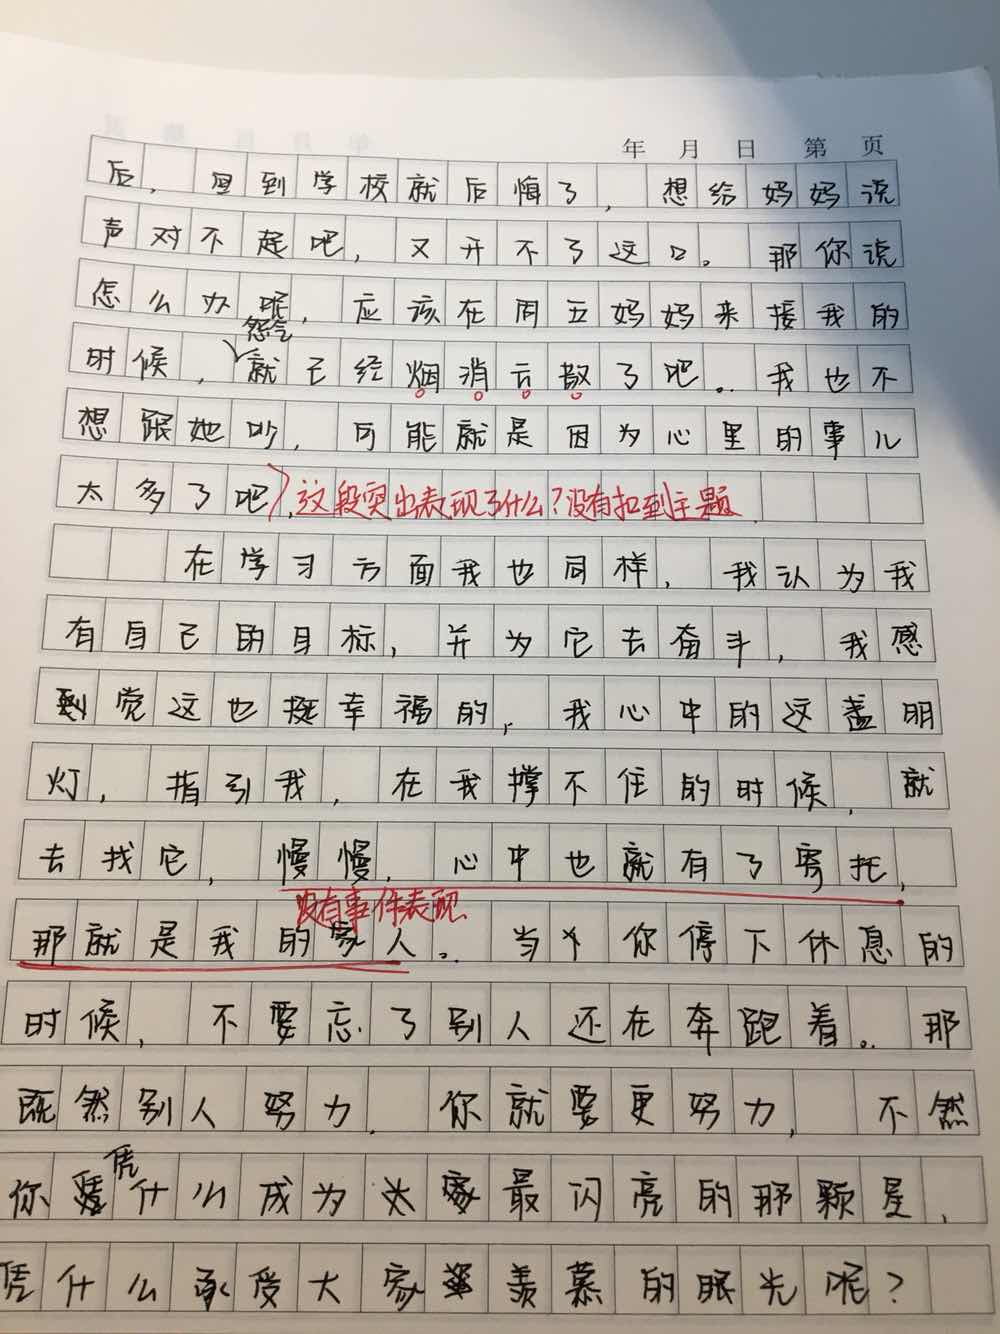 年 月 日 第 页
后，但到学校就后悔了，想给妈妈说
声对不起吧，又开不了这口。那你说
怎么办呢，应该在周五妈妈来接我的
怨气
时候，就已经烟消云散了吧。我也不
想跟她吵，可能就是因为心里的事儿
太多了吧。这段突出表现了什么?没有扣到主题
在学习方面我也同样，我认为我
有自己的目标，并为它去奋斗，我感
觉这也挺幸福的，我心中的这盏明
灯，指引我，在我撑不住的时候，就
去找它，慢慢，心中也就有了寄托，
没有事件表现
那就是我的家人。当你停下休息的
时候，不要忘了别人还在奔跑着。那
既然别人努力，你就要更努力，不然
凭
你什么成为大家最闪亮的那颗星，
凭什么承受大家羡慕的眼光呢?